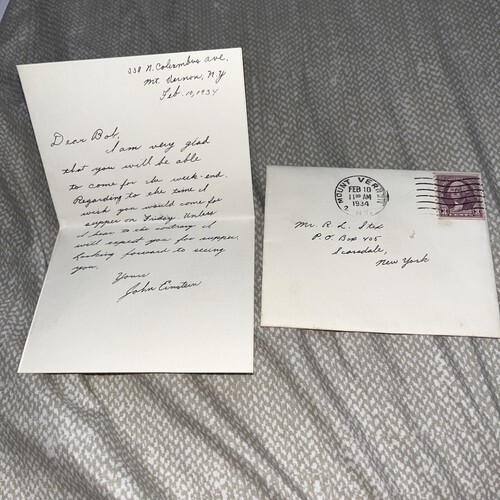 338 N. Columbus Ave.
Mt. Vernon, N.Y
Feb. 10, 1934
Dear Bob,
I am very glad
that you will be able
to come for the week-end.
Regarding to the time I
wish you would come for
supper on Friday. Unless
I hear to the contrary I
will expect you for supper.
Looking forward to seeing
you.
Yours
John Einstein
MOUNT VERNON
FEB 10
11 AM
1934
2
N.Y.
Mr. R. L. Stix
P.O. Box 405
Scarsdale,
New York
3 3